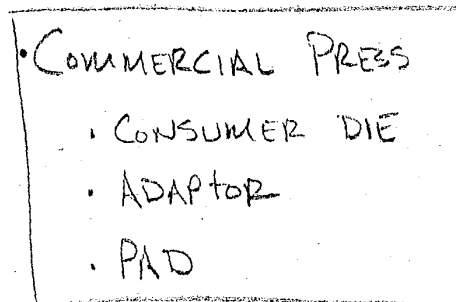 • COMMERCIAL PRESS
• CONSUMER DIE
• ADAPTOR
• PAD